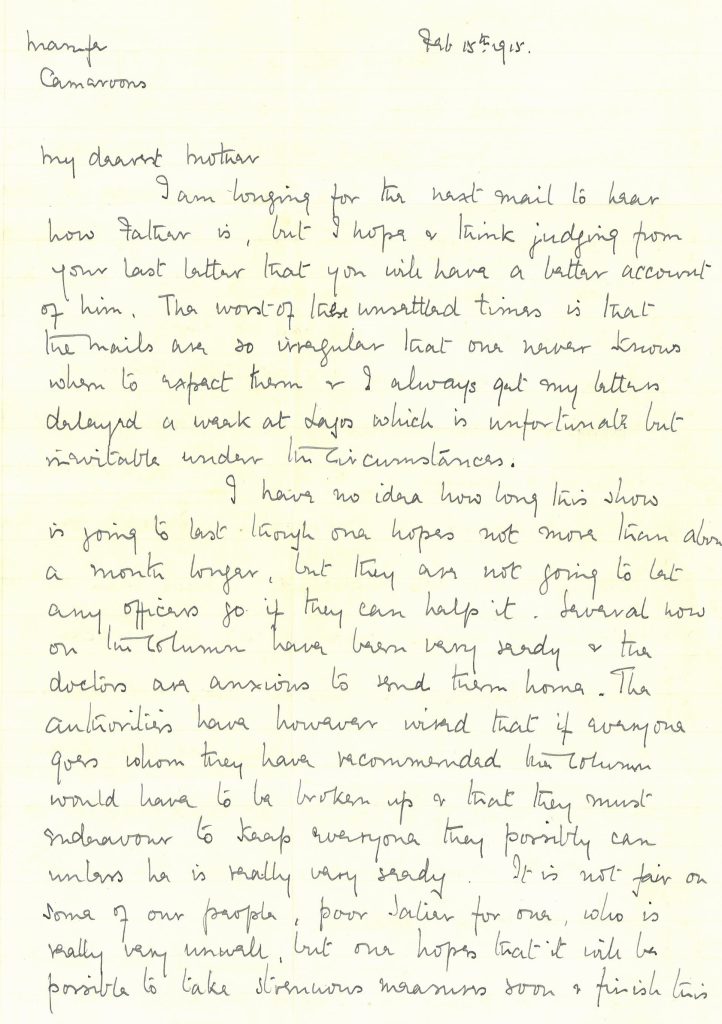 Mamfe
Feb 15th 1915.
Camaroons
My dearest Mother
I am longing for the next mail to hear
how Father is, but I hope & think judging from
your last letter that you will have a better account
of him. The worst of these unsettled times is that
the mails are so irregular that one never knows
when to expect them & I always get my letters
delayed a week at Lagos which is unfortunate but
inevitable under the circumstances.
I have no idea how long this show
is going to last though one hopes not more than about
a month longer, but they are not going to let
any officers go if they can help it. Several now
on the Column have been very seedy & the
doctors are anxious to send them home. The
authorities have however wired that if everyone
goes whom they have recommended the Column
would have to be broken up & that they must
endeavour to keep everyone they possibly can
unless he is really very seedy. It is not fair on
some of our people, poor for one, who is
really very unwell, but one hopes that it will be
possible to take strenuous measures soon & finish this